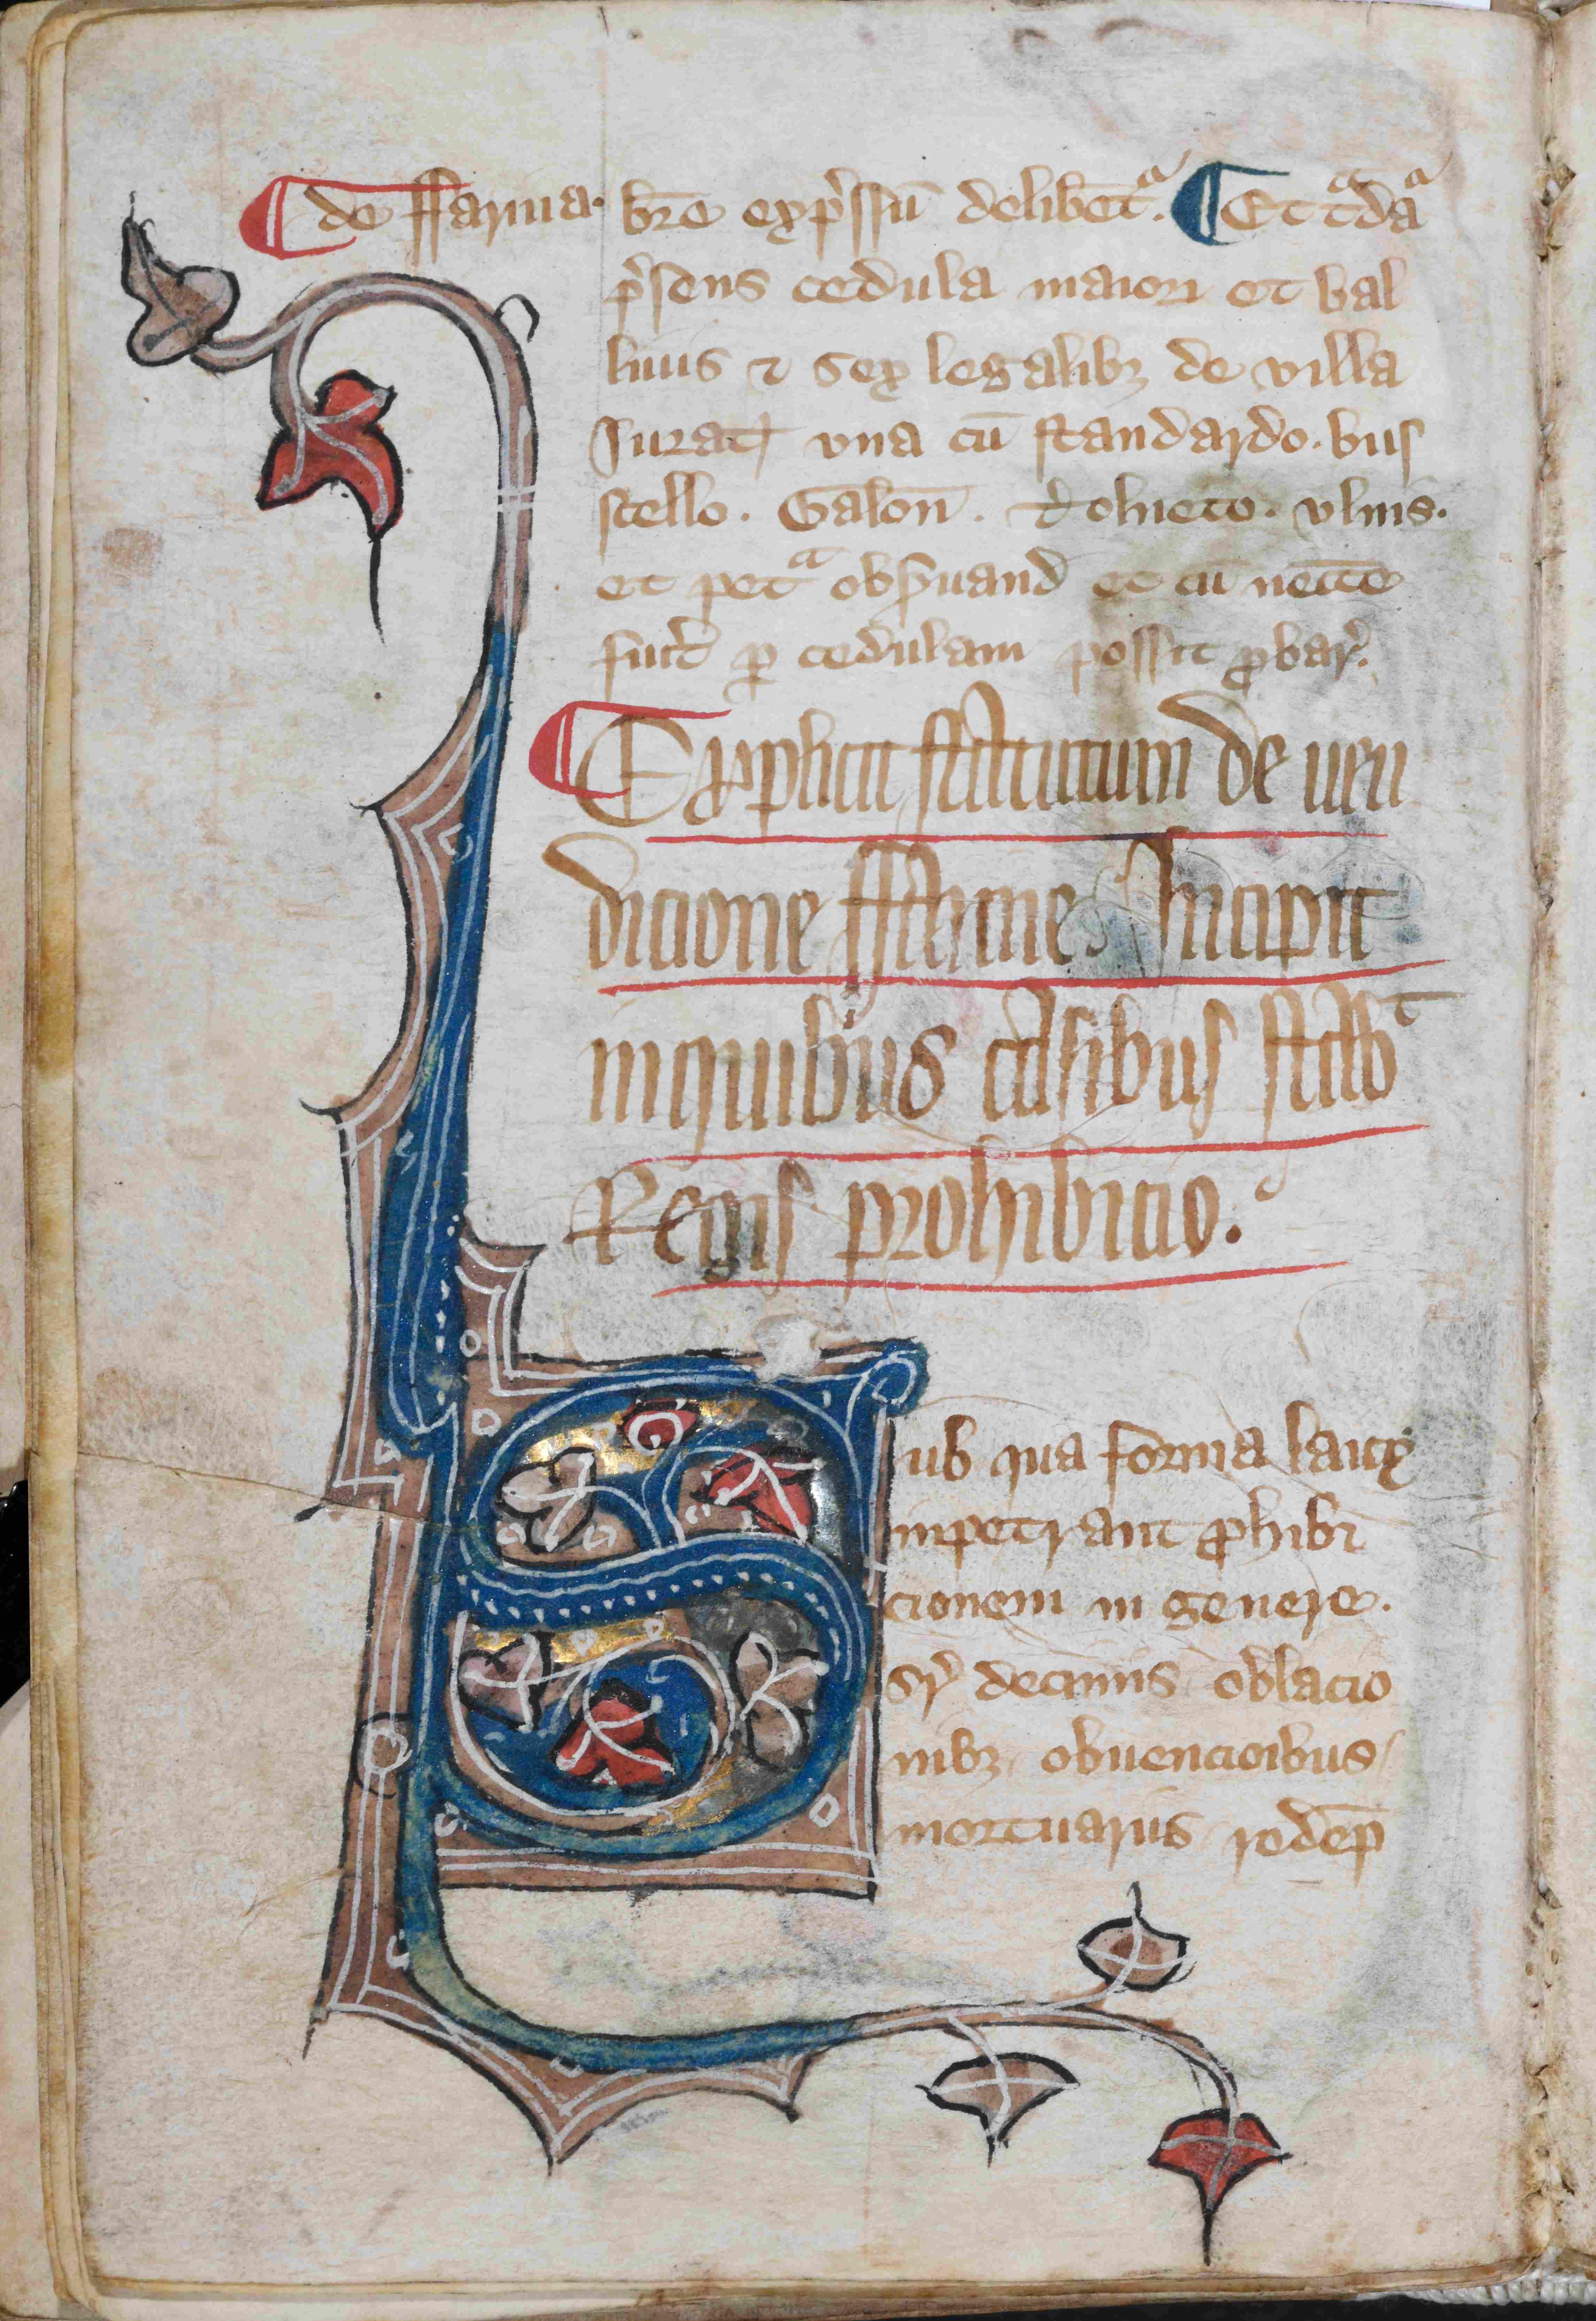 de ffarina. bre exp̾ssū delibetᷓ. Et tᷓdaᷓ
p̾sens cedula maiori et bal
liuis ⁊ sex legalibꝫ de villa
Jurat una cū standardo. bus
stello. Galon̄. t̾ohieto. vlnis.
et petᷓ obs̾uand et cū necc̄e
fuit̾ ꝑ cedulam possit ꝓbar̾.
Explicit statutum de uen
dicione ffarine. Incipit
in quibus casibus stab͛t
Regis prohibicio.
Sub qua forma laicꝝ
inpetrant ꝓhibi
cionem in genere.
sr̾ decimis oblacio
nibꝫ obuencioibus
mortuariis redēp